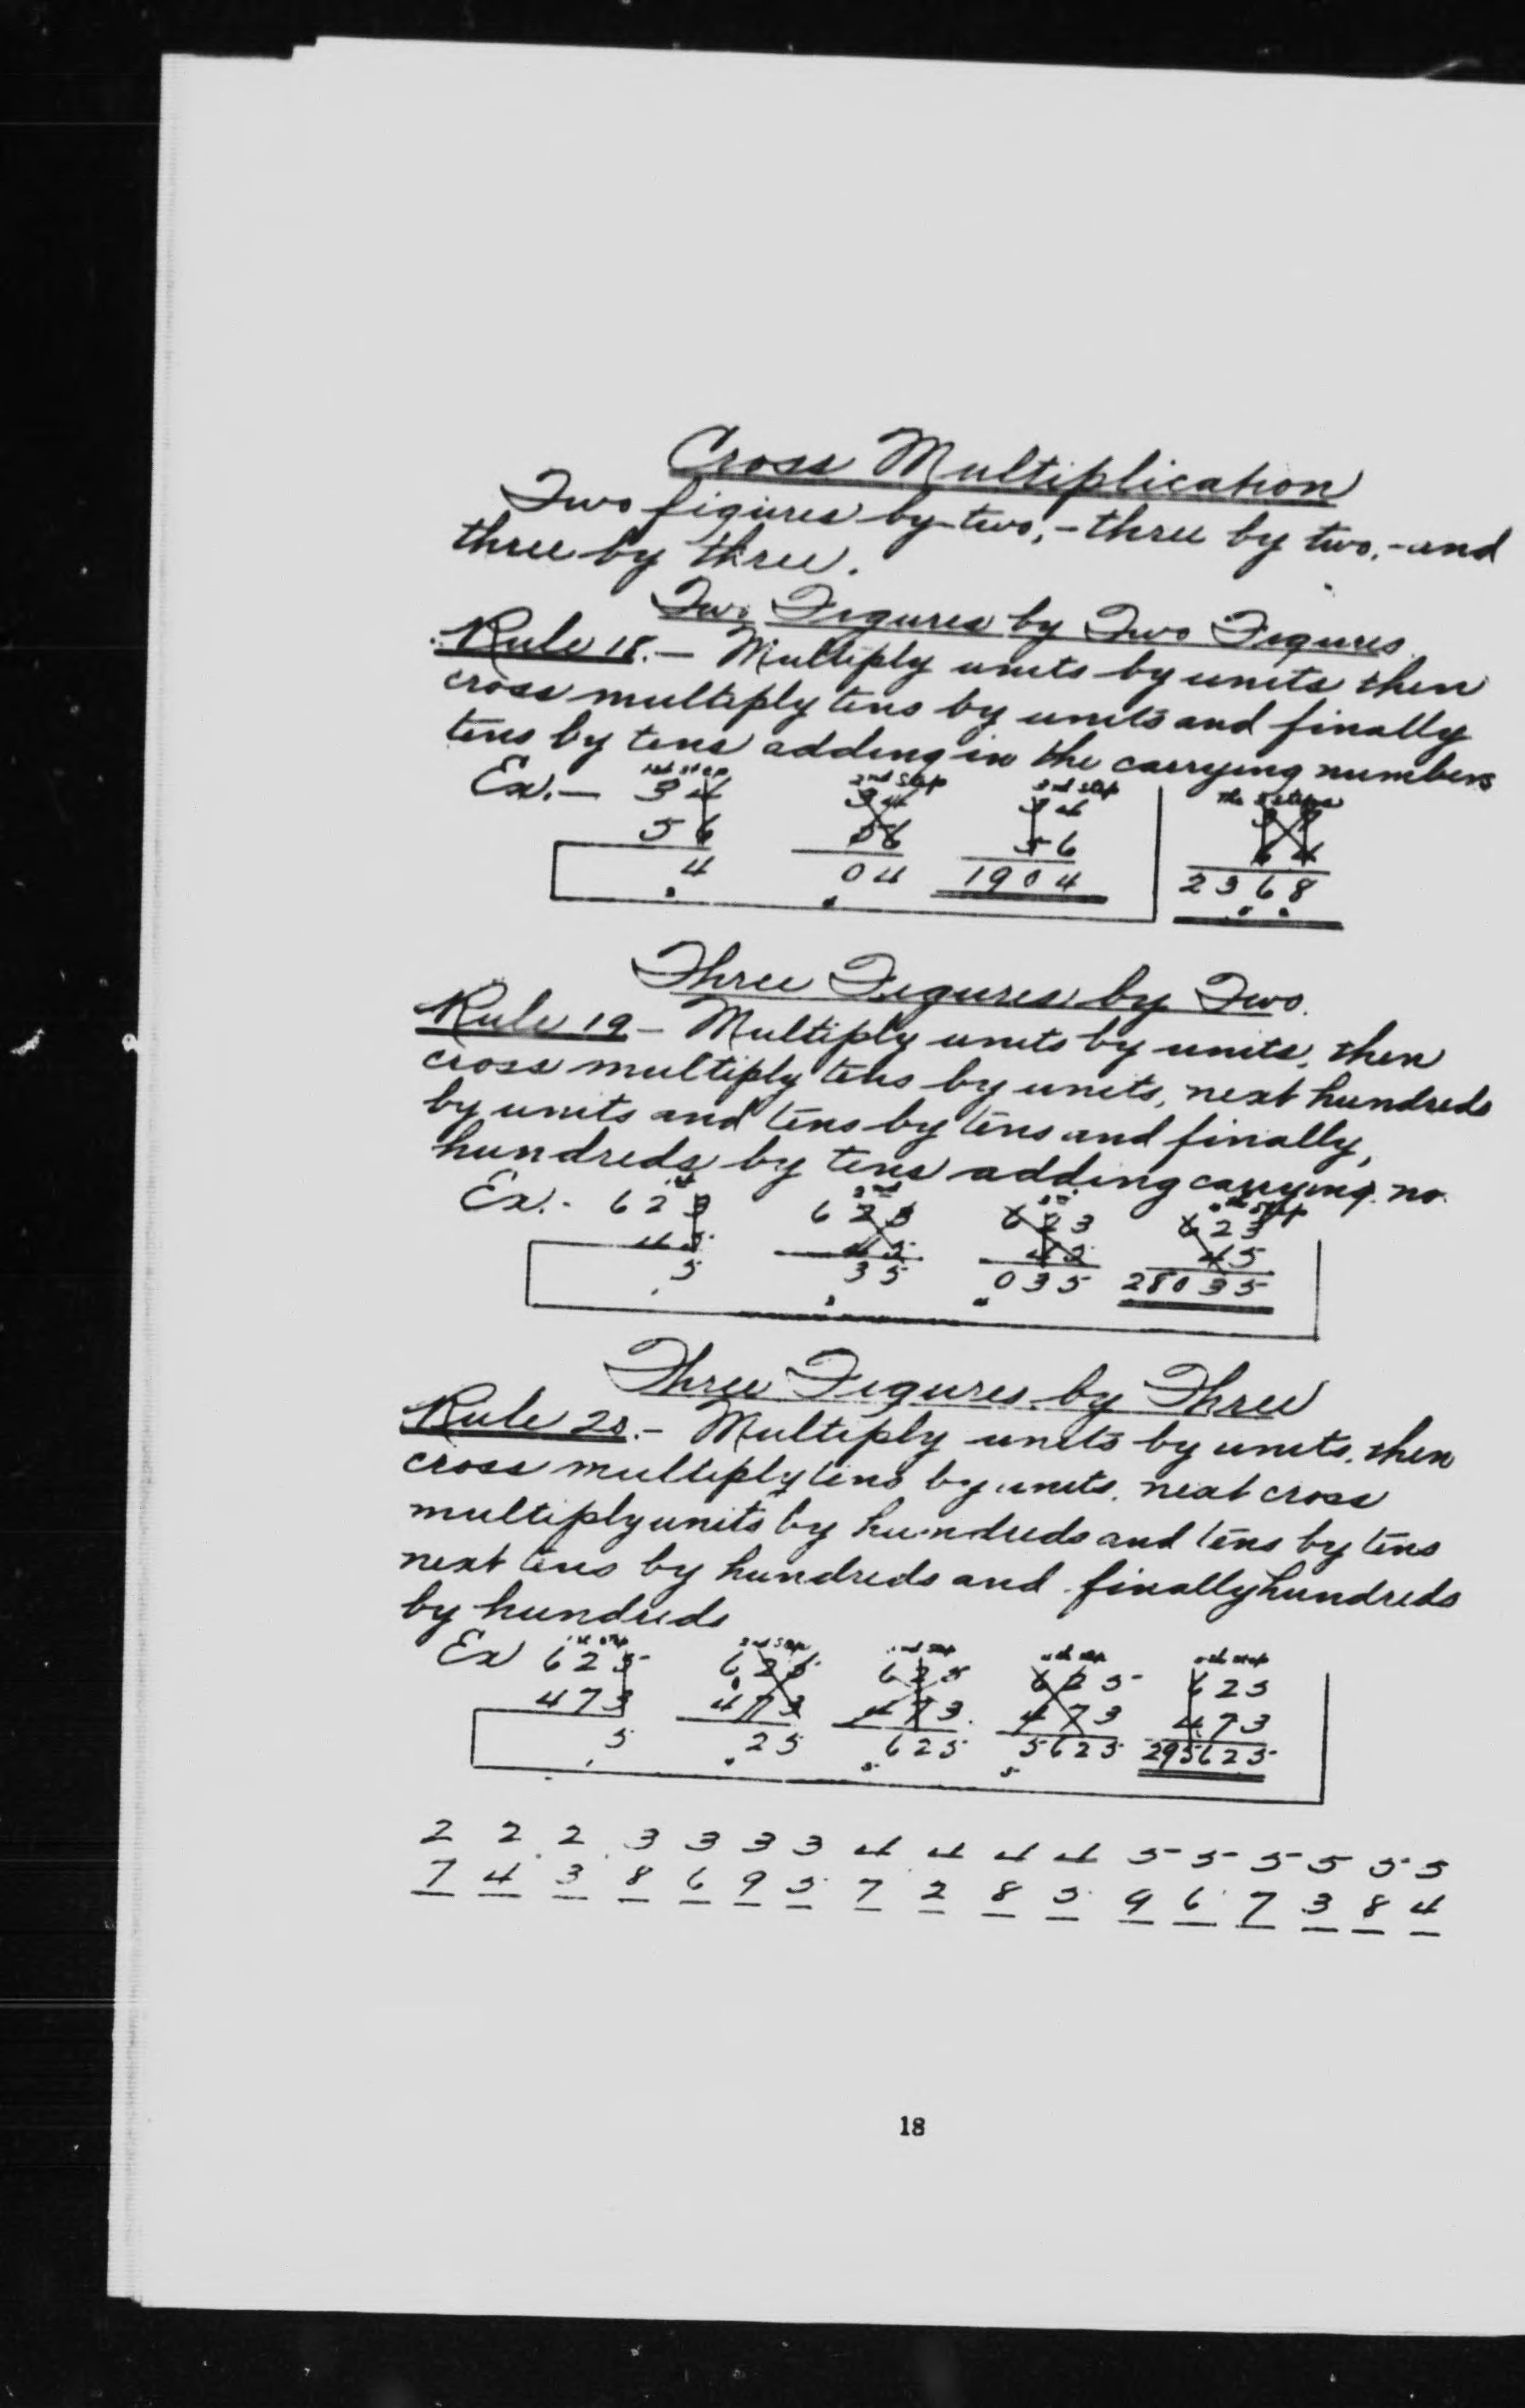 Cross Multiplication
Two figures by two, - three by two, - and
three by three.
Two Figures by Two Figures.
Rule 18. — Multiply units by units then
cross multiply tens by units and finally
tens by tens adding in the carrying numbers
Ex. — 1st step 2nd step 3rd step The 3 steps
34 34 34 37
56 56 56 64
4 04 1904 2368
Three Figures by Two.
Rule 19 — Multiply units by units, then
cross multiply tens by units, next hundreds
by units and tens by tens and finally,
hundreds by tens adding carrying no.
Ex. - 623 623 623 623
45 45 45 45
5 35 035 28035
Three Figures by Three
Rule 20. - Multiply units by units, then
cross multiply tens by units, next cross
multiply units by hundreds and tens by tens
next tens by hundreds and finally hundreds
by hundreds
Ex 625 625 625 625 625
473 473 473 473 473
5 25 625 5625 295625
2 2 2 3 3 3 3 4 4 4 4 5 5 5 5 5 5
7 4 3 8 6 9 5 7 2 8 5 9 6 7 3 8 4
18